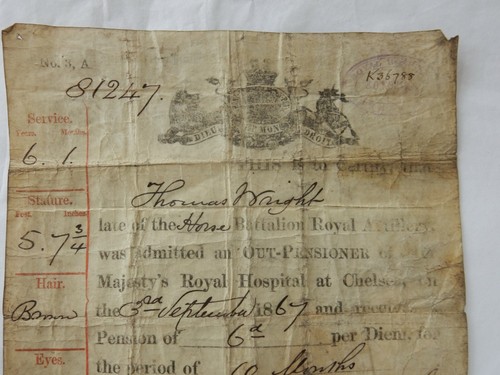 No. 3, A
81247.
K36788
DIEU ET MON DROIT
Service.
Years. Months.
6. 1.
THIS is to Certify, that
Thomas Wright
Stature.
Feet. Inches
5. 7 3/4
late of the Horse Battalion Royal Artillery,
was admitted an OUT-PENSIONER of
Majesty's Royal Hospital at Chelsea, on
Hair.
the 3rd September 1867 and
Brown
Pension of 6d per Diem, for
Eyes.
the period of Months